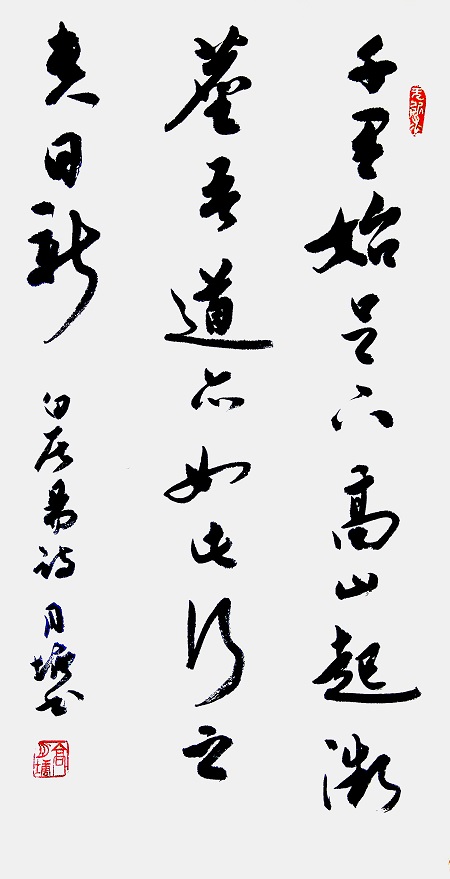 千里始足下高山起微
塵吾道亦如此行之
贵日新
白居易诗 月书